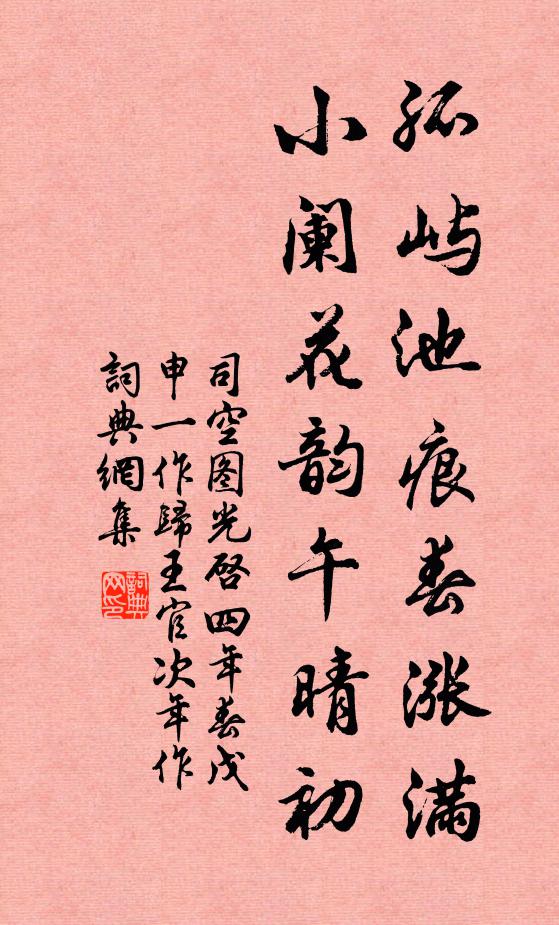 孤屿池痕春涨满
小阑花韵午晴初
司空图光启四年春戊
申一作歸王官次年作
詞典網集
詞典
网印